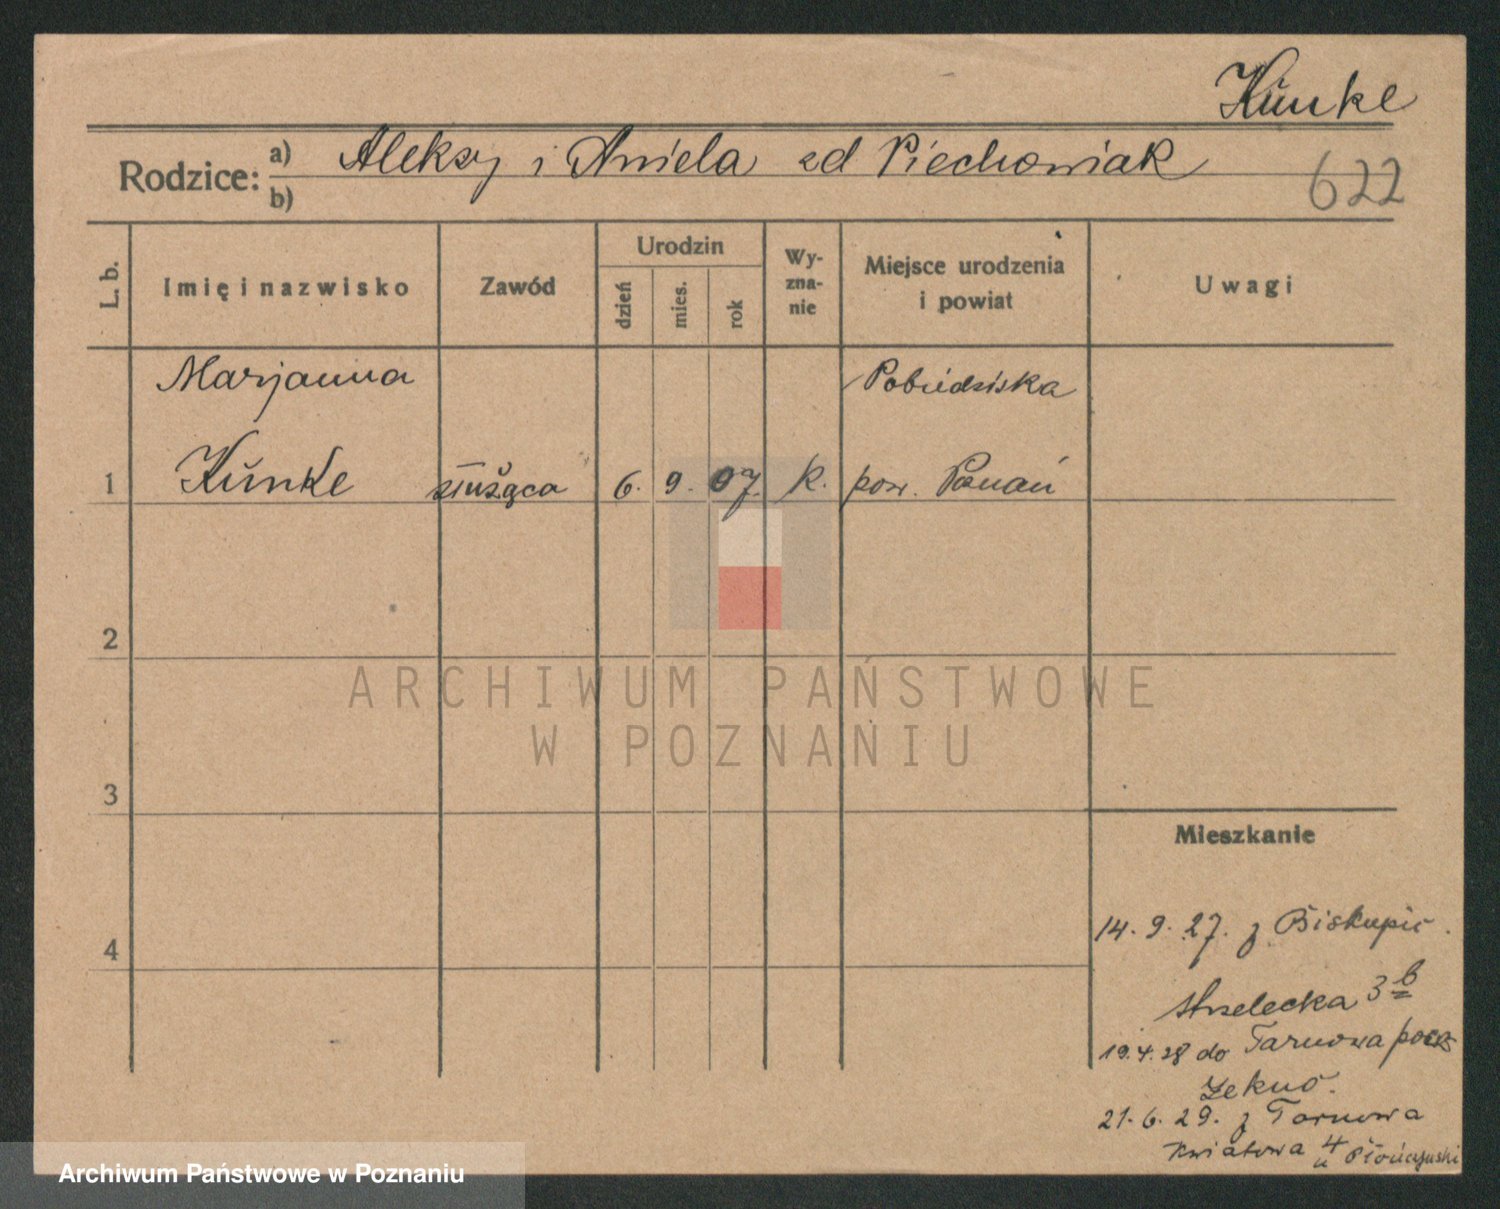 Künke
Rodzice: a) Aleksy i Aniela zd Piechowiak
b)
622
L. b.
Imię i nazwisko
Zawód
Urodzin
dzień
mies.
rok
Wy-
zna-
nie
Miejsce urodzenia
i powiat
Uwagi
Marjanna
Pobiedziska
1
Künke
służąca
6.
9.
07.
k.
pow. Poznań
2
3
4
Mieszkanie
14. 9. 27. z Biskupic.
Strzelecka 3 b
19.4.28 do Tarnowa
21. 6. 29. z Tarnowa
Kwiatowa 4
u
ARCHIWUM PAŃSTWOWE
W POZNANIU
Archiwum Państwowe w Poznaniu